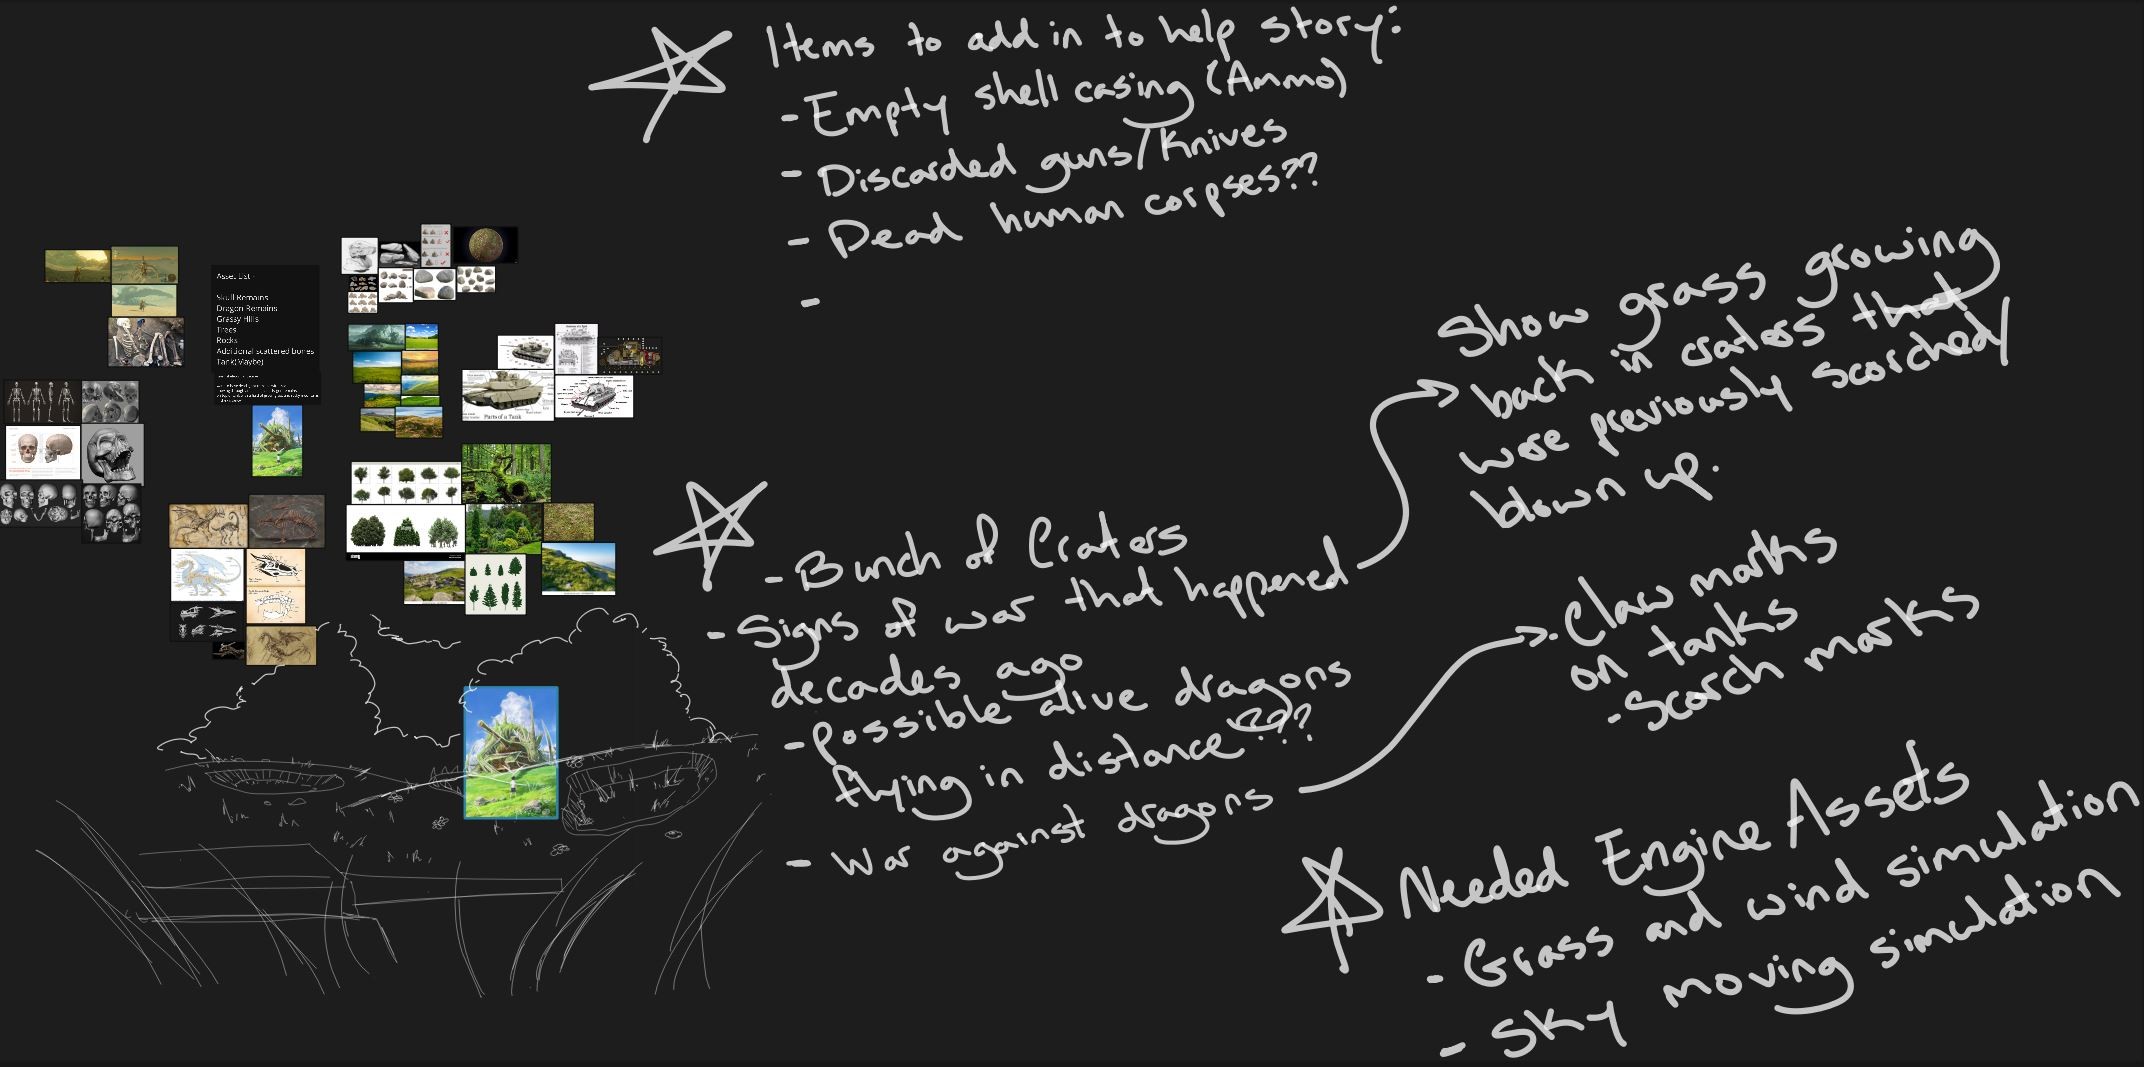 Items to add in to help story:
- Empty shell casing (Ammo)
- Discarded guns/Knives
- Dead human corpses??
-
Asset List -
Skull Remains
Dragon Remains
Grassy Hills
Trees
Rocks
Additional scattered bones
Tank(Maybe)
Parts of a Tank
- Bunch of Craters
- Signs of war that happened
decades ago
- Possible alive dragons
flying in distance???
- War against dragons
Show grass growing
back in craters that
were previously scorched/
blown up.
- Claw marks
on tanks
- Scorch marks
Needed Engine Assets
- Grass and wind simulation
- Sky moving simulation